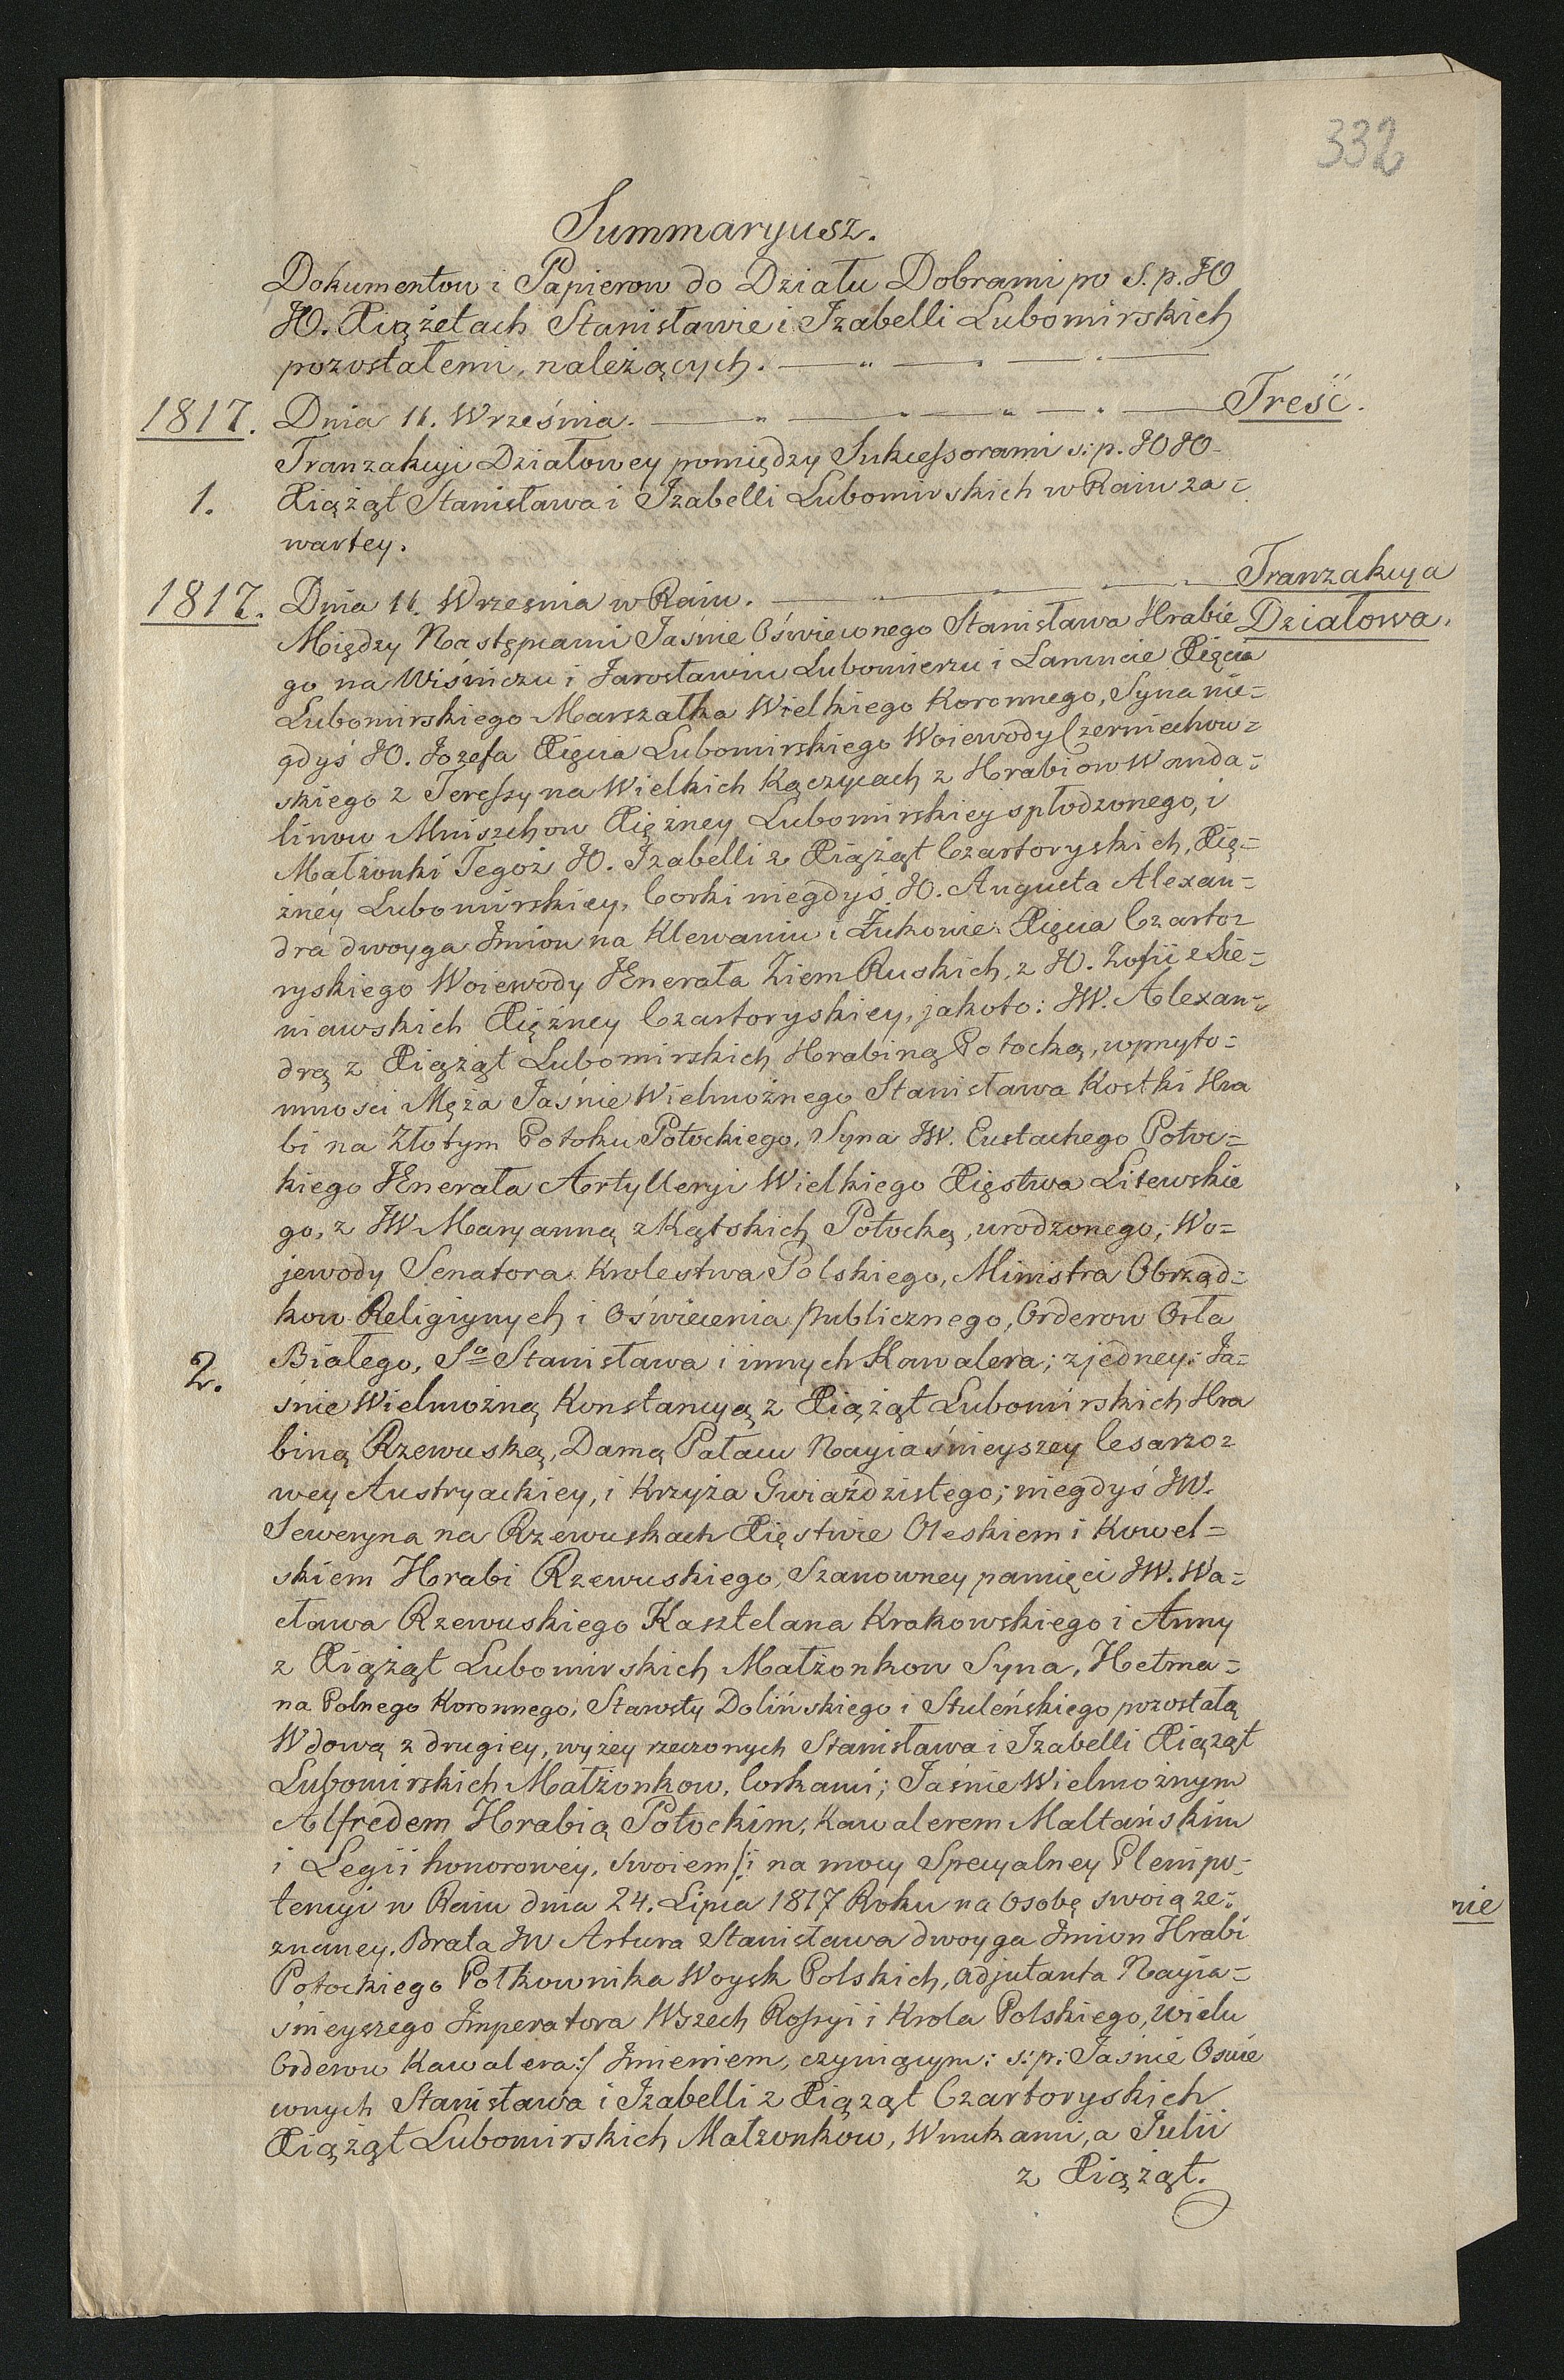 332
Summaryusz.
Dokumentow i Papierow do Działu Dobrami po S. p. JO
JO. Xiążętach Stanisławie i Izabelli Lubomirskich
pozostałemi, należących.
1817. Dnia 11. Września. Treść.
Tranzakcyi Działowey pomiędzy Sukcessorami s: p. JOJO
1. Xiążąt Stanisława i Izabelli Lubomirskich w Raiu za=
wartey.
1817. Dnia 11. Wrzesnia w Raiu. Tranzakcya
Między Następcami Jaśnie Oświeconego Stanisława Hrabie Działowa.
go na Wiśniczu i Jarosławiu Lubomierzu i Łancucie Xięcia
Lubomirskiego Marszałka Wielkiego Koronnego, Syna nie=
gdyś JO. Jozefa Xięcia Lubomirskiego Woiewody Czerniechow=
skiego z Teressy na Wielkich Kączycach z Hrabiow Wanda=
linow Mniszchow Xiężney Lubomirskiey spłodzonego, i
Małżonki Tegoż JO. Izabelli z Xiążąt Czartoryskich, Xię=
żnéy Lubomirskiey, Corki niegdyś JO. Augusta Alexan=
dra dwoyga Imion na Klewaniu i Żukowie Xięcia Czarto=
ryskiego Woiewody JEnerała Ziem Ruskich, z JO. Zofii z Sie=
niawskich Xiężney Czartoryskiey, jakoto: JW. Alexan=
drą z Xiążąt Lubomirskich Hrabiną Potocką, w przyto=
mnosci Męża Jaśnie Wielmożnego Stanisława Kostki Hra
bi na Złotym Potoku Potockiego, Syna JW. Eustachego Potoc=
kiego JEnerała Artylleryi Wielkiego Xięstwa Litewskie
go, z JW Maryanną z Kątskich Potocką, urodzonego, Wo=
jewody Senatora Krolestwa Polskiego, Ministra Obrząd=
kow Religiynych i Oświecenia Publicznego, Orderow Orła
2. Białego, Sgo Stanisława i innych Kawalera; z jedney: Ja=
śnie Wielmożną Konstancyą z Xiążąt Lubomirskich Hra
biną Rzewuską, Damą Pałacu Nayiaśnieyszey Cesarzo=
wey Austryackiey, i Krzyża Gwiaździstego; niegdyś JW.
Seweryna na Rzewuskach Xięstwie Oleskiem i Kowel=
skiem Hrabi Rzewuskiego, Szanowney pamięci JW. Wa=
cława Rzewuskiego Kasztelana Krakowskiego i Anny
z Xiążąt Lubomirskich Małżonkow Syna, Hetma=
na Polnego Koronnego, Starosty Dolińskiego i Stuleńskiego pozostałą
Wdową z drugiey, wyżey rzeczonych Stanisława i Izabelli Xiążąt
Lubomirskich Małżonkow, Corkami; Jaśnie Wielmożnym
Alfredem Hrabią Potockim, Kawalerem Maltańskim
i Legii honorowéy, swoiem /: i na mocy Specyalney Plenipo=
tencyi w Raiu dnia 24. Lipca 1817 Roku na Osobę swoią ze=
znaney. Brata JW Artura Stanisława dwoyga Imion Hrabi
Potockiego Połkownika Woysk Polskich, Adjutanta Nayia=
śnieyszego Imperatora Wszech Rossyi i Krola Polskiego, Wielu
Orderow Kawalera :/ Imieniem, czyniącym: s: p: Jaśnie Oświe
conych Stanisława i Izabelli z Xiążąt Czartoryskich
Xiążąt Lubomirskich Małzonkow, Wnukami, a Julii
z Xiążąt.
nie